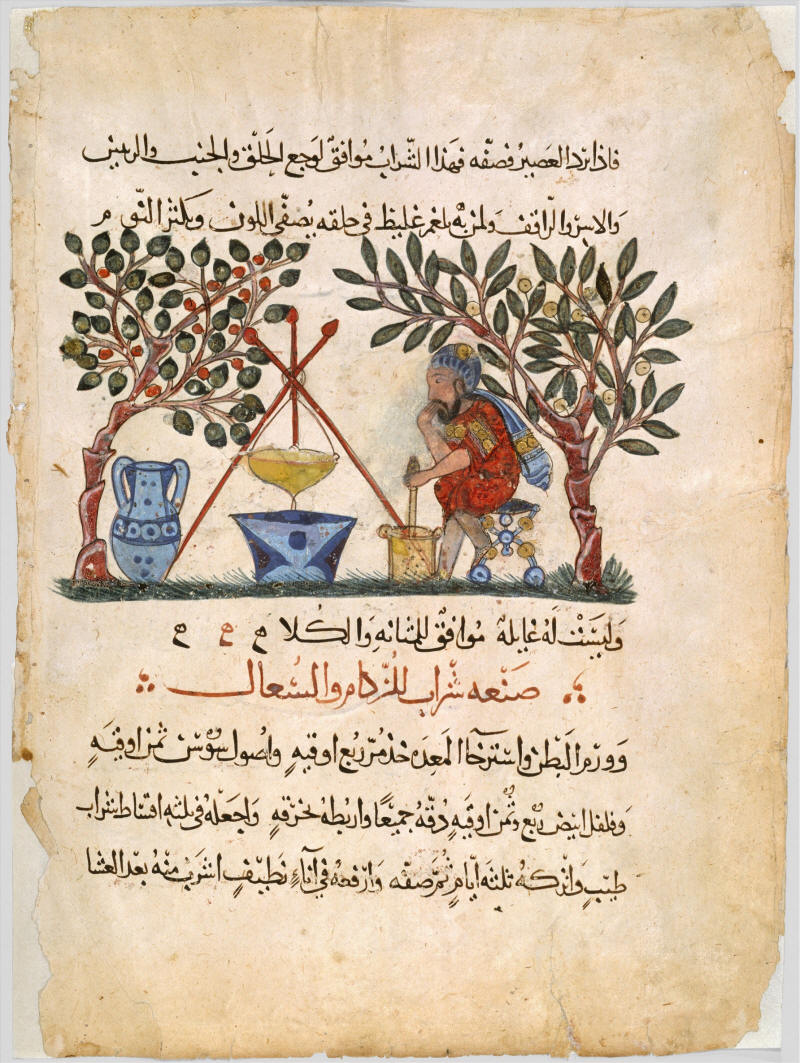 فاذا برد العصير فصفّه فهذا الشّراب موافقٌ لوجع الحَلق والجنب والريه
والاسر والرّاقف ولمن به بلغم غليظ في حلقه يُصفّي اللون ويكثر النّوم
وليسَت لَهُ غايله موافق للمثانه والكُلا ح ح ح
صَنعه شراب للزّكام والسُعال
وورم البَطن واسترخا المعدَه خذ مرّ ربع اوقيهٍ واصُول سُوسَن ثمن اوقيَهٍ
وفلفل ابيض ربع وثُمن اوقيَهٍ دقّهُ جميعًا واربطه بخرقهٍ واجعَلهُ في ثلثه اقساط شراب
طيّبٍ واتركه ثلثَه ايّامٍ ثمّ صَفّه وارفعهُ في اناءٍ نظيفٍ اشرب منهُ بعدَ العشا